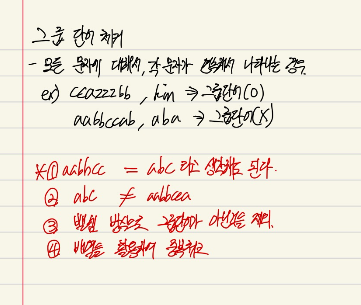 그룹 단어 체커
- 모든 문자에 대해서, 각 문자가 연속해서 나타나는 경우.
ex) ccazzzbb , kin ⇒ 그룹단어(O)
aabbccab, aba → 그룹단어(X)
*① aabbcc = abc 라고 생각해도 된다.
② abc ≠ aabbcca
③ 방식으로 그룹단어 아닌것을 제외.
④ 배열을 활용하여 중복체크